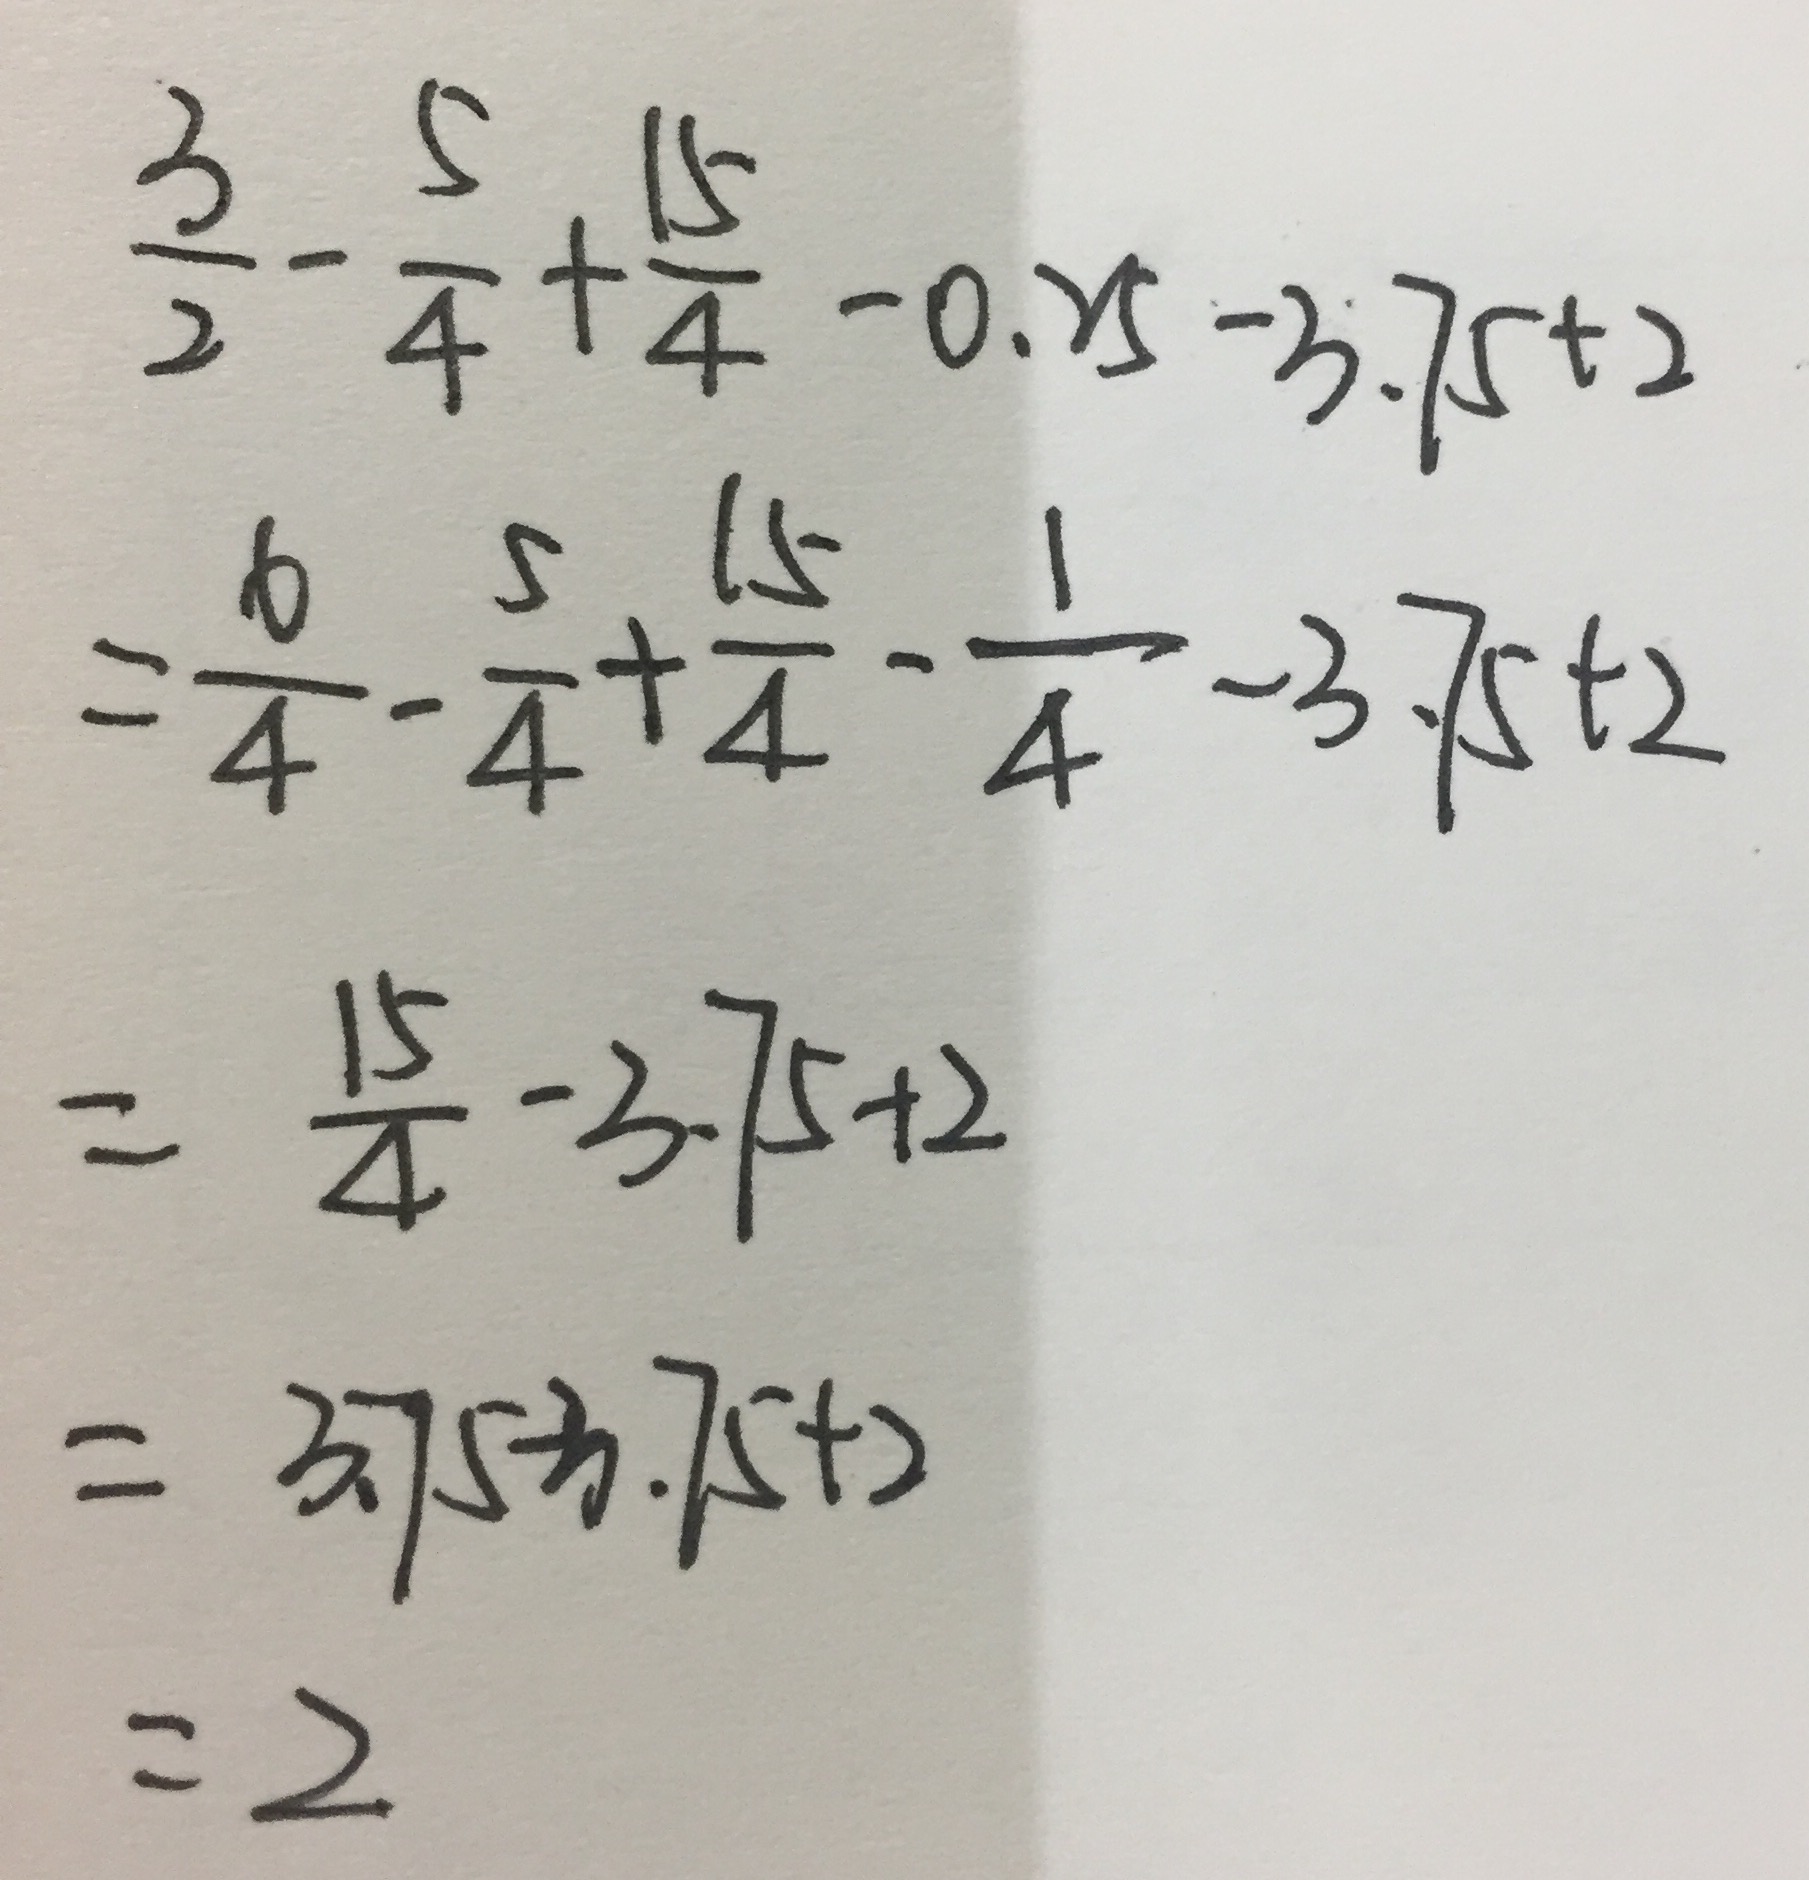 3/2 - 5/4 + 15/4 - 0.25 - 3.75 + 2
= 6/4 - 5/4 + 15/4 - 1/4 - 3.75 + 2
= 15/4 - 3.75 + 2
= 3.75 - 3.75 + 2
= 2